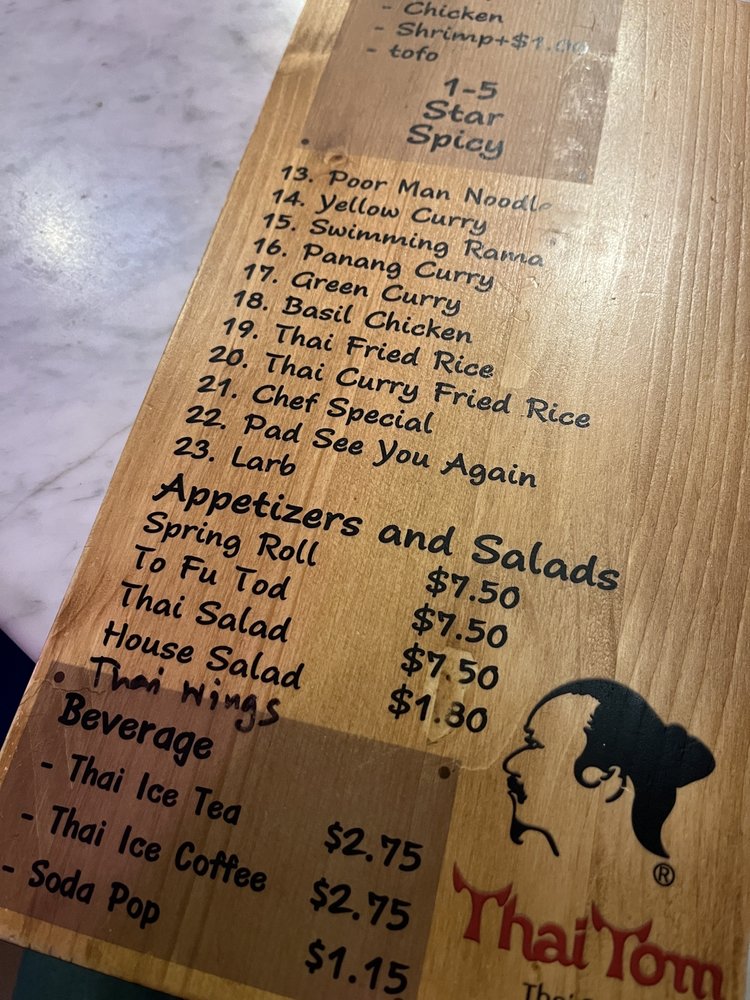 - Chicken
- Shrimp+$1.00
- tofo
1-5
Star
Spicy
13. Poor Man Noodle
14. Yellow Curry
15. Swimming Rama
16. Panang Curry
17. Green Curry
18. Basil Chicken
19. Thai Fried Rice
20. Thai Curry Fried Rice
21. Chef Special
22. Pad See You Again
23. Larb
Appetizers and Salads
Spring Roll $7.50
To Fu Tod $7.50
Thai Salad $7.50
House Salad $1.80
• Thai Wings
Beverage
- Thai Ice Tea $2.75
- Thai Ice Coffee $2.75
- Soda Pop $1.15
®
Thai Tom